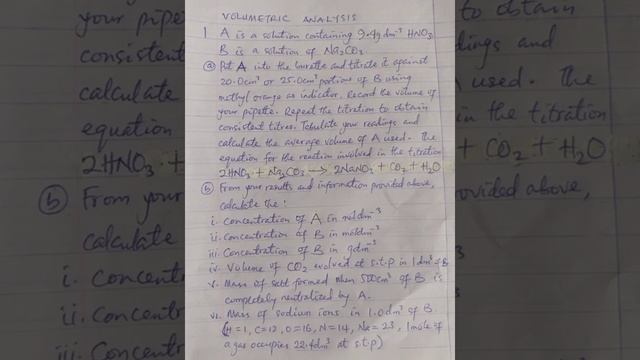 VOLUMETRIC ANALYSIS
1 A is a solution containing 9.4g dm⁻³ HNO₃
B is a solution of Na₂CO₃
(a) Put A into the burette and titrate it against
20.0cm³ or 25.0cm³ portions of B using
methyl orange as indicator. Record the volume of
your pipette. Repeat the titration to obtain
consistent titres. Tabulate your readings and
calculate the average volume of A used. The
equation for the reaction involved in the titration
2HNO₃ + Na₂CO₃ → 2NaNO₃ + CO₂ + H₂O
(b) From your results and information provided above,
calculate the:
i. Concentration of A in moldm⁻³
ii. Concentration of B in moldm⁻³
iii. Concentration of B in gdm⁻³
iv. Volume of CO₂ evolved at s.t.p in 1dm³ of B
v. Mass of salt formed when 500cm³ of B is
completely neutralized by A.
vi. Mass of sodium ions in 1.0dm³ of B.
(H=1, C=12, O=16, N=14, Na=23, 1 mole of
a gas occupies 22.4dm³ at s.t.p)